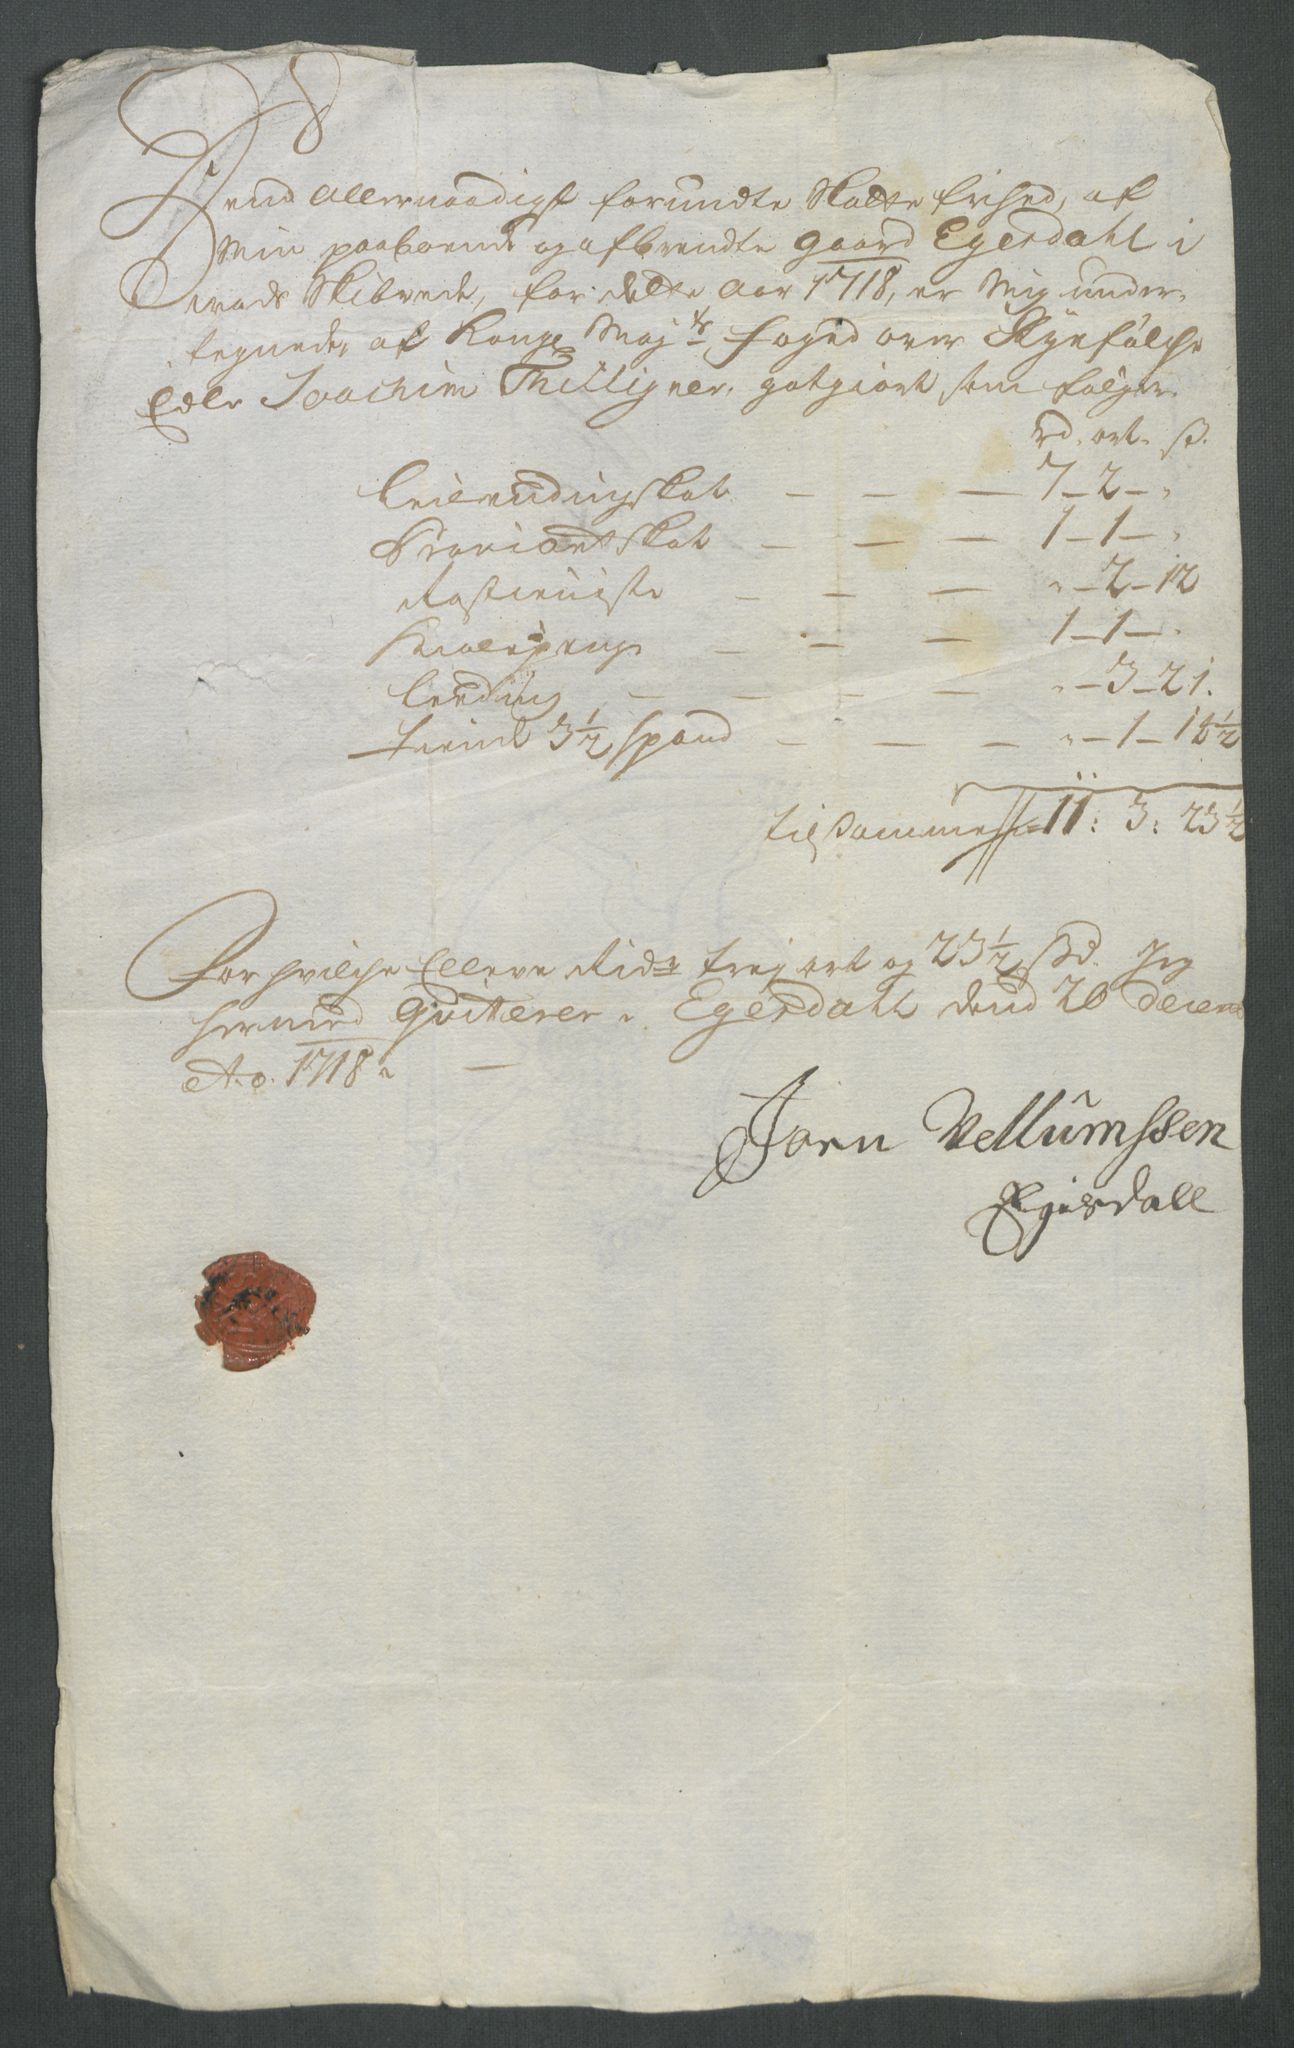 Dend Allernaadigst forundte Skatte frihed, af
Min paaboende og afbrendte gaard Egerdahl i
Werads Skibrede, for dette Aar 1718, er Mig under-
tegnede, af Kongl Maj:ts foged over Ryefølche
Edle Joachim Thilligner, gotgiort som følger
rd. ort. ß.
Leilendingskat — — — 7 – 2 – "
Proviantskat — — — 1 – 1 – "
Rostieniste — — — " – 2 – 12
— — — 1 – 1 – "
Leeding — — — — " – 3 – 21.
Tiende 3½ spand — — — " – 1 – 14½
tilsammen 11: 3: 23½
For hvilche Elleve Rid:r trej ort og 23½ ß d. Jeg
hermed Qvitterer. Egerdahl dend 20 decem
A:o 1718. —
Jorn Vellumssen
Egisdall